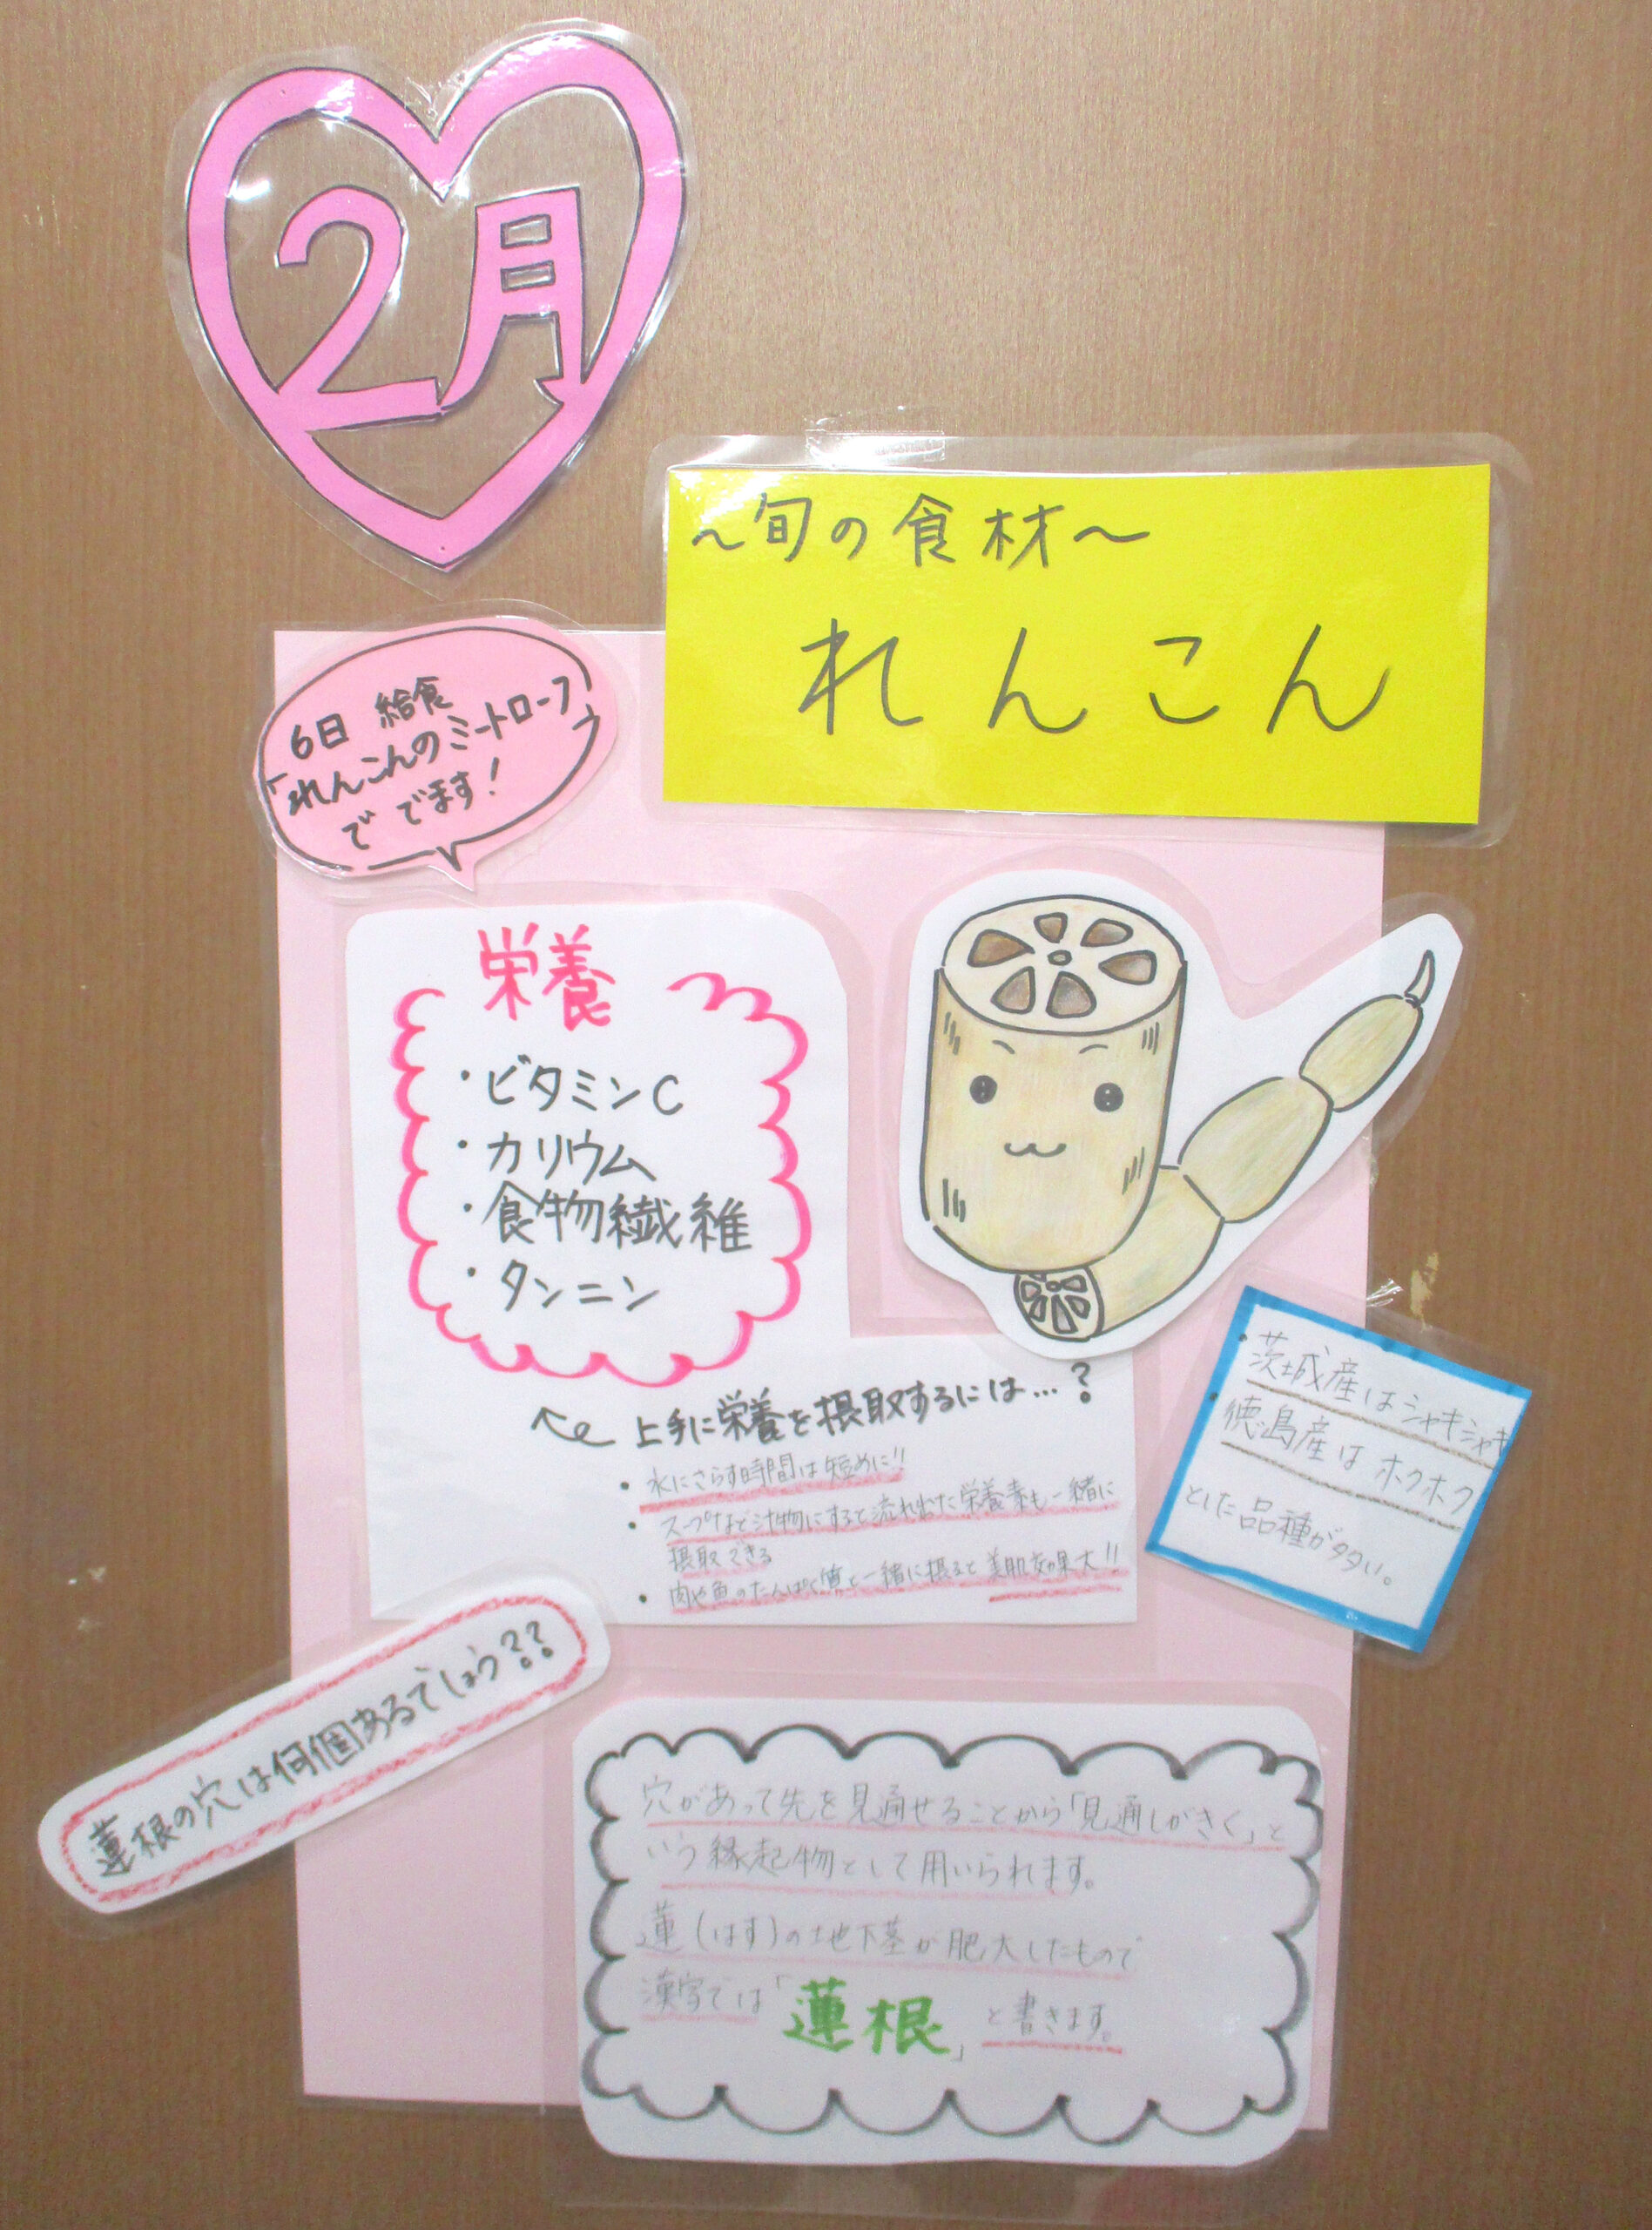 2月
～旬の食材～
れんこん
6日 給食
「れんこんのミートローフ」
で でます！
栄養
・ビタミンC
・カリウム
・食物繊維
・タンニン
上手に栄養を摂取するには…？
・水にさらす時間は短めに!!
・スープなど汁物にすると流れ出た栄養素も一緒に
摂取できる
・肉や魚のたんぱく質と一緒に摂ると美肌効果大!!
・茨城産はシャキシャキ
・徳島産はホクホク
とした品種が多い。
蓮根の穴は何個あるでしょう??
穴があって先を見通せることから「見通しがきく」と
いう縁起物として用いられます。
蓮(はす)の地下茎が肥大したもので
漢字では「蓮根」と書きます。